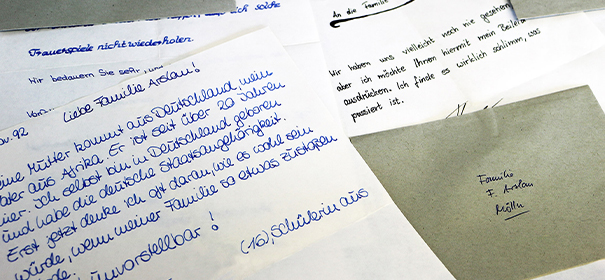 solche
Trauerspiele nicht wiederholen.
Wir bedauern Sie sehr, und
ov. 92
Liebe Familie Arslan!
eine Mutter kommt aus Deutschland, mein
ater aus Afrika. Er ist seit über 20 Jahren
hier. Ich selbst bin in Deutschland geboren
und habe die deutsche Staatsangehörigkeit.
Erst jetzt denke ich oft daran, wie es wohl sein
würde, wenn meiner Familie so etwas zustoßen
unvorstellbar!
(16), Schülerin aus
An die Familie
Wir haben uns vielleicht noch nie gesehen
aber ich möchte Ihnen hiermit mein Beileid
ausdrücken. Ich finde es wirklich schlimm, was
passiert ist.
Familie
F. Arslan
Mölln